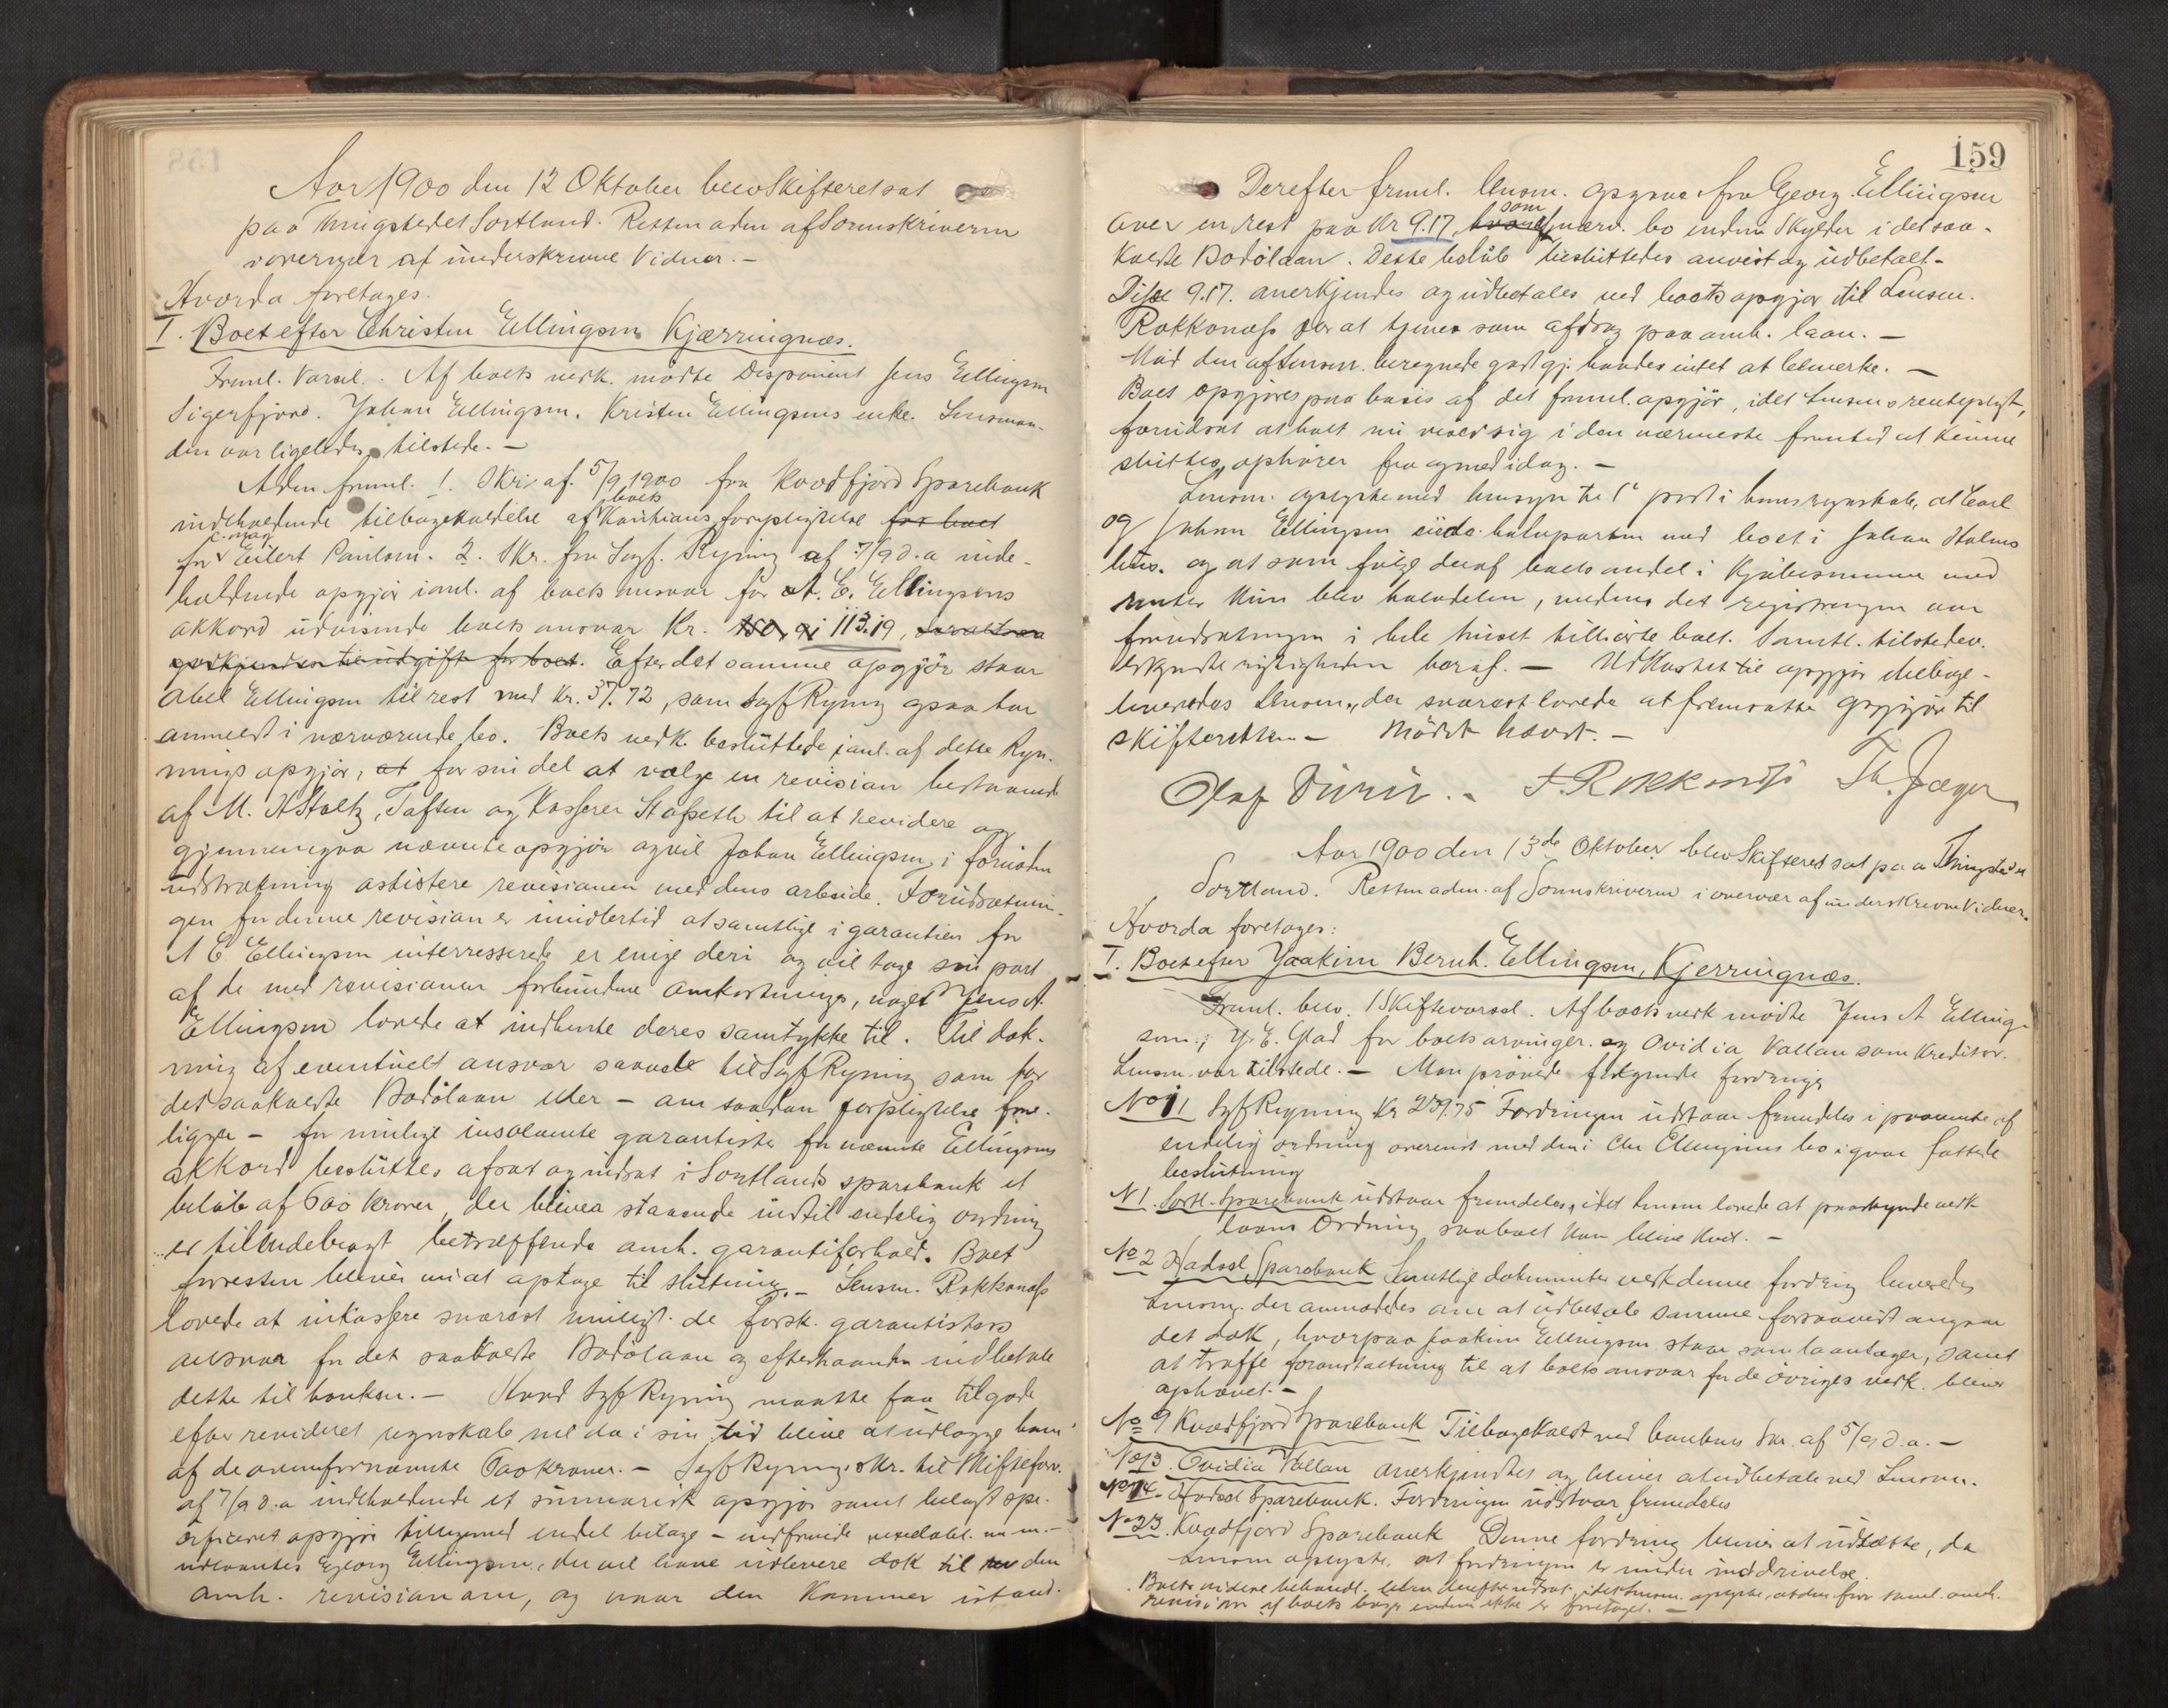 Aar 1900 den 12 Oktober blev Skifteret sat
paa Thingstedet Sortland. Retten adm af Sorenskriveren
i overvær af underskrevne Vidner. –
Hvorda foretages.
I. Boet efter Christen Ellingsen Kjærringnæs.
Freml. Varsel. Af boets vedk. mødte Disponent Jens Ellingsen
Sigerfjord. Johan Ellingsen. Kristen Ellingsens enke. Lensman-
den var ligeledes tilstede. –
Adm freml. 1. Skr. af 5/9 1900 fra Kvædfjord Sparebank
indeholdende tilbagekaldelse af boets Kautionsforpligtelse for boet
for C. Mag Eilert Paulsen. 2. Skr. fra Sagf. Ryning af 7/9 d.a inde-
holdende opgjør ianl. af boets ansvar for A. E. Ellingsens
akkord udvisende boets ansvar Kr. 113.19,
godkjendes til udgift for boet. Efter det samme opgjør staar
Abel Ellingsen til rest med Kr. 37.72, som Sagf Ryning ogsaa har
anmeldt i nærværende bo. Boets vedk. besluttede ianl. af dette Ryn-
nings opgjør, at for sin del at vælge en revision bestaaende
af M. H Stoltz, Toften og Kasserer Stafseth til at revidere og
gjennemgaa nævnte opgjør og vil Johan Ellingsen i fornøden
udstrækning assistere revisionen med dens arbeide. Forudsætnin-
gen for denne revision er imidlertid at samtlige i garantien for
A E. Ellingsen interresserede er enige deri og vil tage sin part
af de med revisionen forbundne omkostninger, noget Jens A.
Ellingsen lovede at indhente deres samtykke til. Til dæk-
ning af eventuelt ansvar saavel til Sagf Ryning som for
det saakaldte Bodølaan eller – om saadan forpligtelse fore-
ligger – for mulige insolvente garantister for nævnte Ellingsens
akkord besluttes afsat og indsat i Sortlands sparebank et
beløb af 600 kroner, der bliver staaende indtil endelig ordning
er tilendebragt betræffende omh. garantiforhold. Boet
forresten bliver nu at optage til slutning. – Lensm. Rokkonæs
lovede at inkassere snarest muligt de forsk. garantisters
ansvar for det saakaldte Bodølaan og efterhaanden indbetale
dette til banken. – Hvad Sagf Ryning maatte faa tilgode
efter revideret regnskab vil da i sin tid blive at udlægge ham
af de ovenfornævnte 600 kroner. – Sagf Rynings Skr. til Skifteforv.
af 7/9 d.a indeholdende et summarisk opgjør samt belagt spe-
cificeret opgjør tilligemed endel bilage – indfriede vexelobl. m m. –
udlaantes Georg Ellingsen, der vil have udlevere dok til den
omh. revision om, og naar den kommer istand.
159
Derefter freml. Lensm. opgave fra Georg Ellingsen
over en rest paa Kr 9.17, som nærv. bo endnu skylder i det saa-
kaldte Bodølaan. Dette beløb besluttedes anvist og udbetalt. –
Disse 9.17. anerkjendes og udbetales ved boets opgjør til Lensm.
Rokkonæs for at tjene som afdrag paa omh. laan. –
Mod den af Lensm. beregnede godtgj. havdes intet at bemerke. –
Boet opgjøres paa basis af det freml. opgjør, idet Lensm's rentepligt,
forudsat at boet nu viser sig i den nærmeste fremtid at kunne
sluttes, ophører fra og med idag. –
Lensm. oplyste med hensyn til 1ste post i hans regnskab, at Carl
og Johan Ellingsen eiede halvparten med boet i Johan Holms
hus. og at som følge deraf boets andel i Kjøbesummen med
renter kun blev halvdelen, medens det registreringen var
forudsætningen i hele huset tilhørte boet. Samtl. tilstedev.
erkjendte rigtigheden heraf. – Udkastet til opgjør tilbage-
leveredes Lensm., der snarest lovede at fremsætte opgjør til
skifteretten. – Mødet hævet. –
Olaf Durin. F. Rokkonæs Th. Jæger
Aar 1900 den 13de Oktober blev Skifteret sat paa Thingstedet
Sortland. Retten adm. af Sorenskriveren i overvær af underskrevne Vidner.
Hvorda foretages:
I. Boet efter Joakim Bernh. Ellingsen, Kjerringnæs.
Freml. blev 1 Skiftevarsel. Af boets vedk mødte Jens A Elling-
sen; J. E. Glad for boets arvinger og Ovidia Vallan som Kreditor.
Lensm. var tilstede. – Man prøvede følgende fordringer
No 11 Sagf Ryning Kr 239.75 Fordringen udstaar fremdeles i paavente af
endelig ordning overenst med den i Chr Ellingsens bo igaar fattede
beslutning
N 1. Sortl. Sparebank udstaar fremdeles, idet Lensm lovede at paaskynde vedk
laans Ordning saa boet kan blive kvit. –
No 2 Hadsel Sparebank Samtlige dokumenter vedk denne fordring leveredes
Lensm. der anmodedes om at udbetale samme forsaavidt angaar
det dok, hvorpaa Joakim Ellingsen staar som laantager, samt
at træffe foranstaltning til at boets ansvar for de øvriges vedk. bliver
ophævet. –
No 9 Kvædfjord Sparebank Tilbagekaldt ved bankens Skr. af 5/9 d.a. –
No 13. Ovidia Vallan anerkjendtes og bliver at udbetale ved Lensm.
No 14. Hadsel Sparebank. Fordringen udstaar fremdeles
No 23. Kvædfjord Sparebank Denne fordring bliver at udsætte, da
Lensm oplyste, at fordringen er under inddrivelse.
Boets videre behandl. blev derefter udsat, idet Lensm. oplyste, at den før saml. omh.
revision af boets bøger endnu ikke er foretaget. –